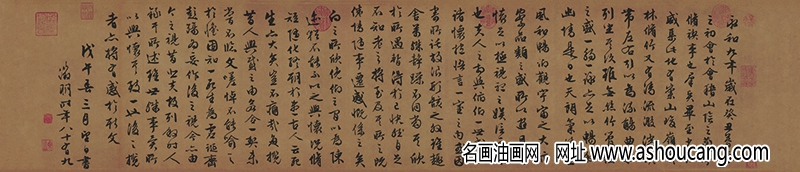 永和九年歲在癸丑暮春
之初會于會稽山陰之蘭亭
脩稧事也群賢畢至少長
咸集此地有崇山峻領茂
林脩竹又有清流激湍映
帶左右引以為流觴曲水
列坐其次雖無絲竹管弦
之盛一觴一詠亦足以暢敘
幽情是日也天朗氣清惠
風和暢仰觀宇宙之大俯
察品類之盛所以遊目騁
懷足以極視聽之娛信可樂
也夫人之相與俯仰一世或取
諸懷抱悟言一室之內或因
寄所託放浪形骸之外雖趣
舍萬殊靜躁不同當其欣
於所遇暫得於己快然自足
不知老之將至及其所之既
倦情隨事遷感慨係之矣
向之所欣俛仰之間以為陳
迹猶不能不以之興懷況脩
短隨化終期於盡古人云死
生亦大矣豈不痛哉每攬
昔人興感之由若合一契未
嘗不臨文嗟悼不能喻之
於懷固知一死生為虛誕齊
彭殤為妄作後之視今亦由
今之視昔悲夫故列敘時人
錄其所述雖世殊事異所
以興懷其致一也後之攬
者亦將有感於斯文
戊午春三月望日書
徵明時年八十有九
名画油画网，网址 www.ashoucang.com